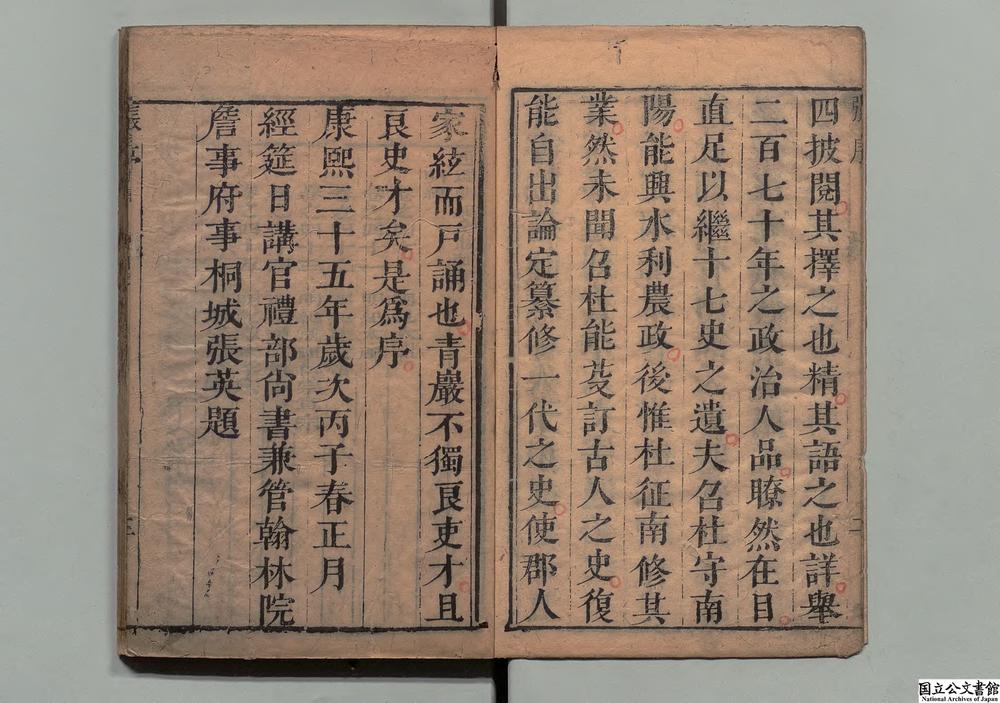 四披閱其擇之也精其語之也詳舉
二百七十年之政治人品瞭然在目
直足以繼十七史之遺夫召杜守南
陽能興水利農政後惟杜征南修其
業然未聞召杜能芟訂古人之史復
能自出論定纂修一代之史使郡人
家絃而戸誦也青巖不獨良吏才且
良史才矣是爲序
康熙三十五年歲次丙子春正月
經筵日講官禮部尚書兼管翰林院
詹事府事桐城張英題
国立公文書館
National Archives of Japan